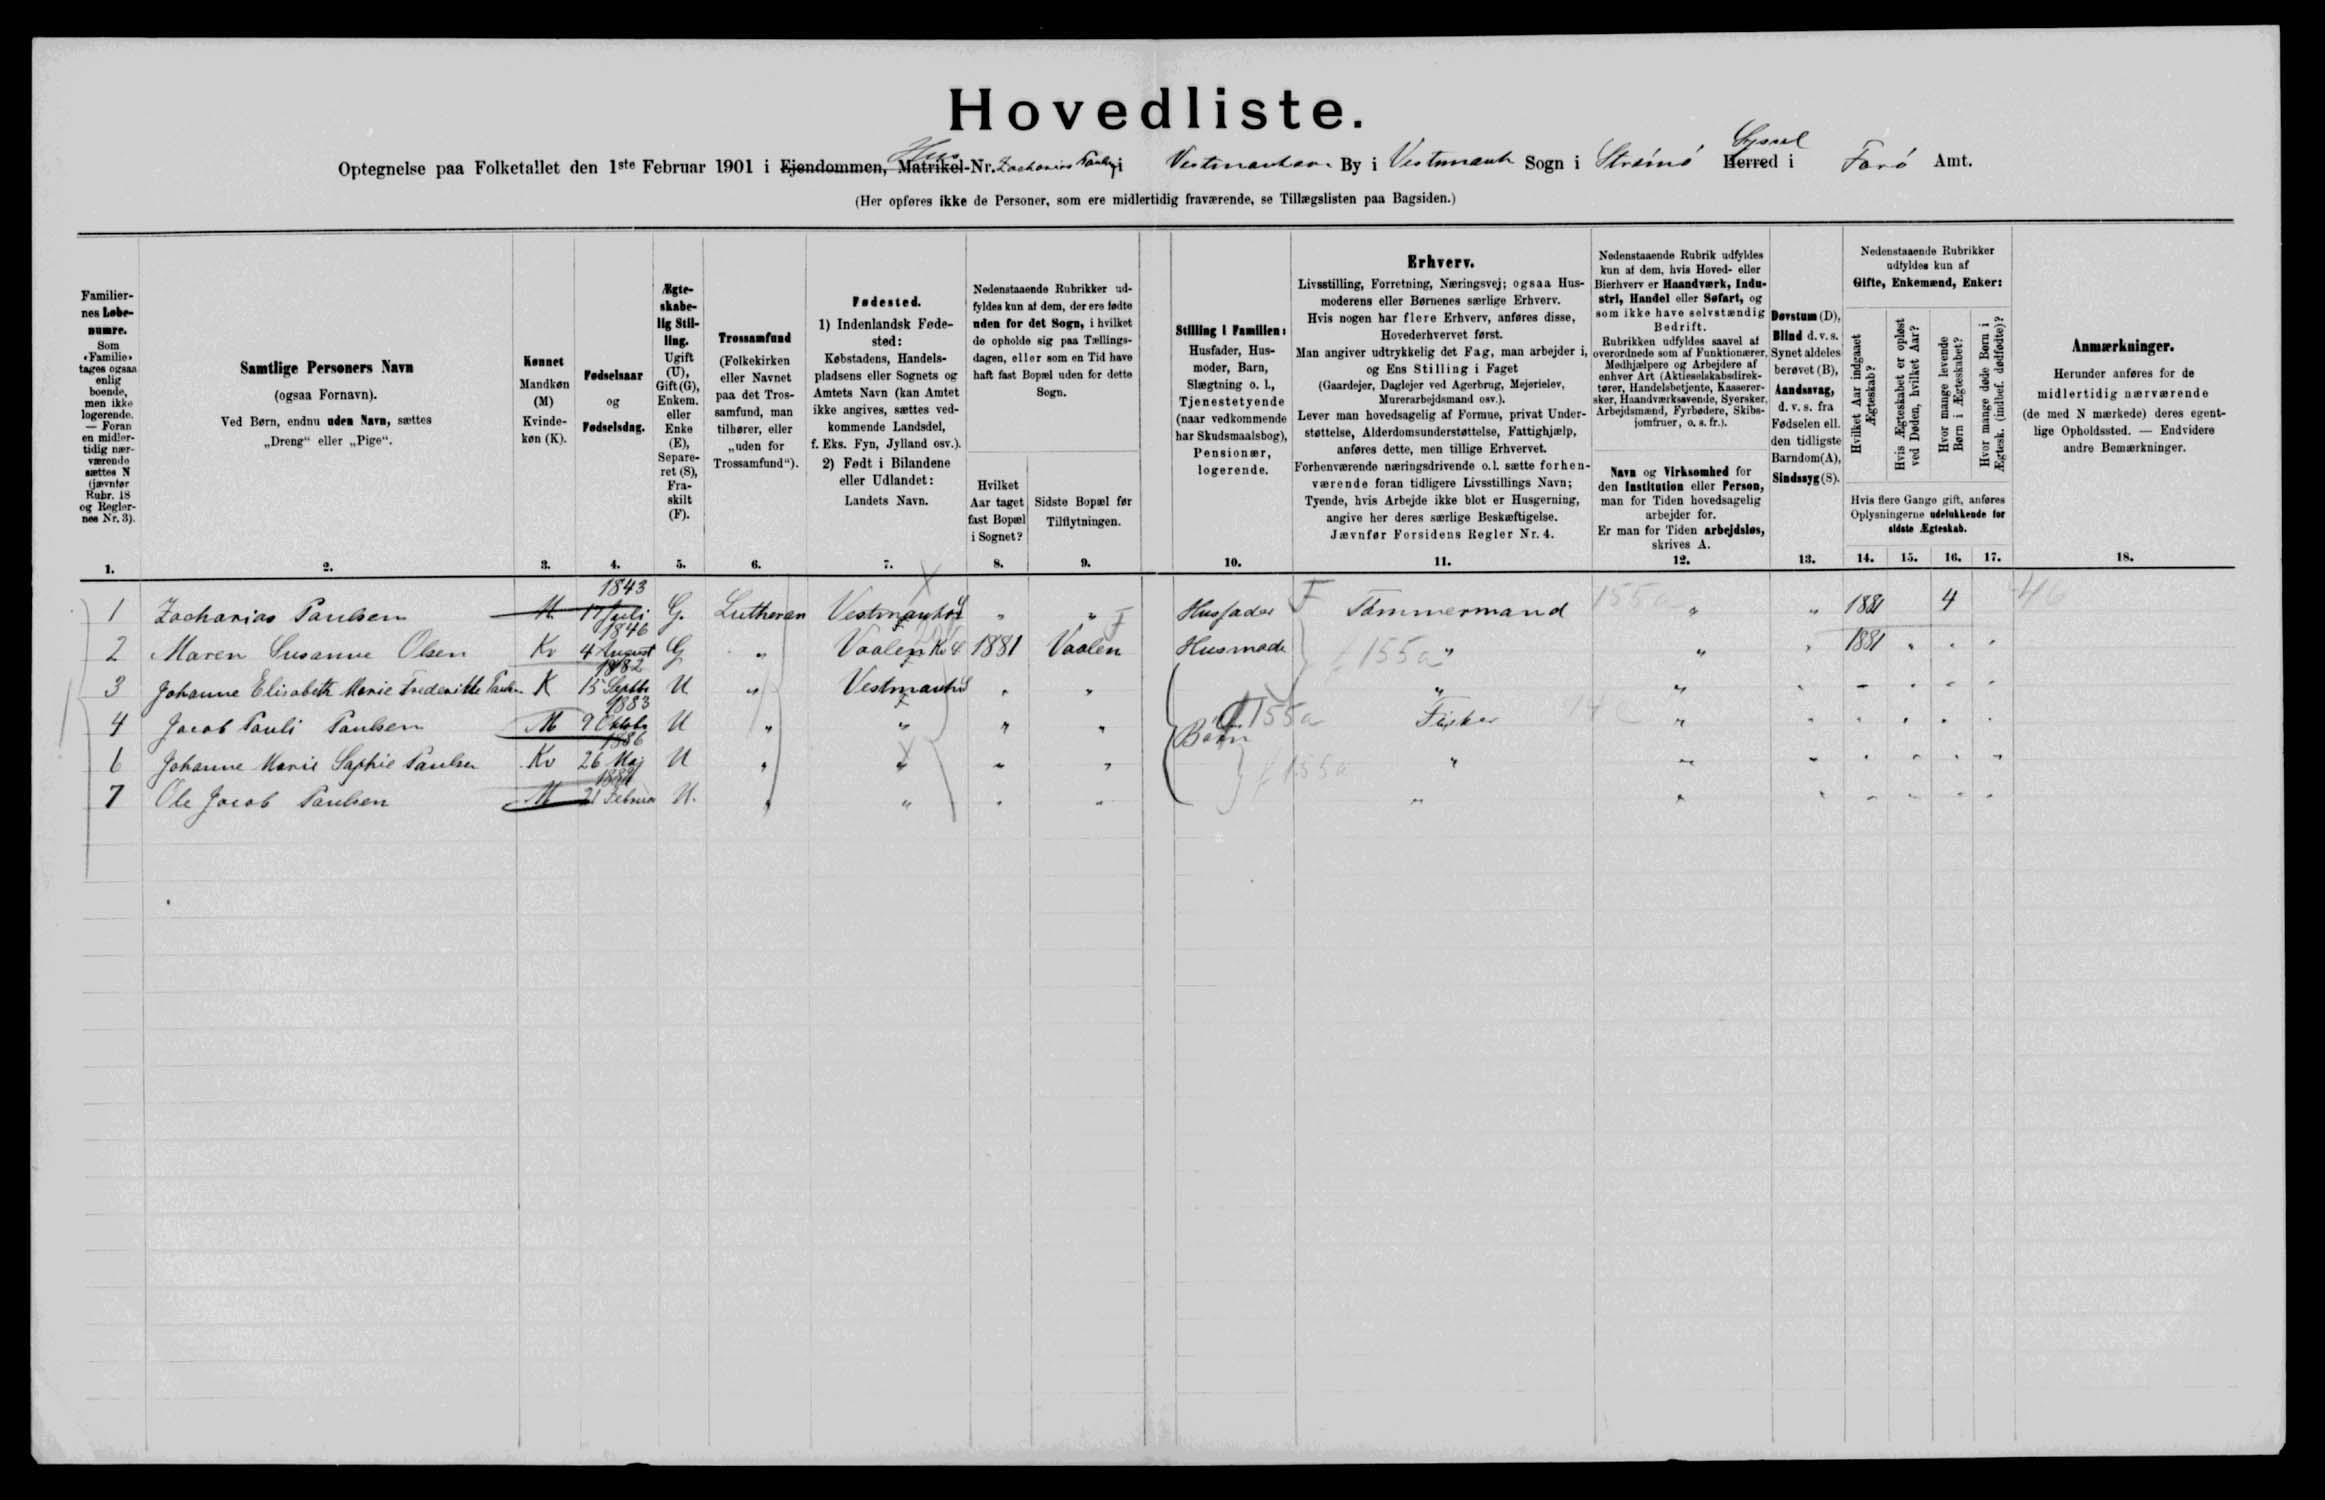 Hovedliste.
Optegnelse paa Folketallet den 1ste Februar 1901 i Ejendommen, Matrikel-Nr. Hus Zacharias Paulsen i Vestmanhavn By i Vestmanh Sogn i Strömö Herred Syssel i Farö Amt.
(Her opføres ikke de Personer, som ere midlertidig fraværende, se Tillægslisten paa Bagsiden.)
Familiernes Løbenumre.
Som «Familie» tages ogsaa enlig boende, men ikke logerende. — Foran en midlertidig nærværende sættes N (jævnfør Rubr. 18 og Reglernes Nr. 3).
Samtlige Personers Navn
(ogsaa Fornavn).
Ved Børn, endnu uden Navn, sættes „Dreng“ eller „Pige“.
Kønnet
Mandkøn (M)
Kvindekøn (K).
Fødselsaar og Fødselsdag.
Ægteskabelig Stilling.
Ugift (U), Gift (G), Enkem. eller Enke (E), Separeret (S), Fraskilt (F).
Trossamfund
(Folkekirken eller Navnet paa det Trossamfund, man tilhører, eller „uden for Trossamfund“).
Fødested.
1) Indenlandsk Fødested:
Købstadens, Handelspladsens eller Sognets og Amtets Navn (kan Amtet ikke angives, sættes vedkommende Landsdel, f. Eks. Fyn, Jylland osv.).
2) Født i Bilandene eller Udlandet:
Landets Navn.
Nedenstaaende Rubrikker udfyldes kun af dem, der ere fødte uden for det Sogn, i hvilket de opholde sig paa Tællingsdagen, eller som en Tid have haft fast Bopæl uden for dette Sogn.
Hvilket Aar taget fast Bopæl i Sognet?
Sidste Bopæl før Tilflytningen.
Stilling i Familien:
Husfader, Husmoder, Barn, Slægtning o. l., Tjenestetyende (naar vedkommende har Skudsmaalsbog), Pensionær, logerende.
Erhverv.
Livsstilling, Forretning, Næringsvej; ogsaa Husmoderens eller Børnenes særlige Erhverv.
Hvis nogen har flere Erhverv, anføres disse, Hovederhvervet først.
Man angiver udtrykkelig det Fag, man arbejder i, og Ens Stilling i Faget
(Gaardejer, Daglejer ved Agerbrug, Mejerielev, Murerarbejdsmand osv.).
Lever man hovedsagelig af Formue, privat Understøttelse, Alderdomsunderstøttelse, Fattighjælp, anføres dette, men tillige Erhvervet.
Forhenværende næringsdrivende o.l. sætte forhenværende foran tidligere Livsstillings Navn;
Tyende, hvis Arbejde ikke blot er Husgerning, angive her deres særlige Beskæftigelse.
Jævnfør Forsidens Regler Nr. 4.
Nedenstaaende Rubrik udfyldes kun af dem, hvis Hoved- eller Bierhverv er Haandværk, Industri, Handel eller Søfart, og som ikke have selvstændig Bedrift.
Rubrikken udfyldes saavel af overordnede som af Funktionærer, Medhjælpere og Arbejdere af enhver Art (Aktieselskabsdirektører, Handelsbetjente, Kasserersker, Haandværkssvende, Syersker, Arbejdsmænd, Fyrbødere, Skibsjomfruer, o. s. fr.).
Navn og Virksomhed for den Institution eller Person, man for Tiden hovedsagelig arbejder for.
Er man for Tiden arbejdsløs, skrives A.
Døvstum (D), Blind d. v. s. Synet aldeles berøvet (B), Aandssvag, d. v. s. fra Fødselen ell. den tidligste Barndom (A), Sindssyg (S).
Nedenstaaende Rubrikker udfyldes kun af Gifte, Enkemænd, Enker:
Hvilket Aar indgaaet Ægteskab?
Hvis Ægteskabet er opløst ved Døden, hvilket Aar?
Hvor mange levende Børn i Ægteskabet?
Hvor mange døde Børn i Ægtesk. (indbef. dødfødte)?
Hvis flere Gange gift, anføres Oplysningerne udelukkende for sidste Ægteskab.
Anmærkninger.
Herunder anføres for de midlertidig nærværende (de med N mærkede) deres egentlige Opholdssted. — Endvidere andre Bemærkninger.
1. 2. 3. 4. 5. 6. 7. 8. 9. 10. 11. 12. 13. 14. 15. 16. 17. 18.
1 Zacharias Paulsen M 1843 17 Juli G. Lutheran Vestmanhav " " Husfader F Tömmermand 155a " " 1881 4 46
2 Maren Susanne Olsen Kv 1846 4 August G " Vaalen 1881 Vaalen Husmode 155a " " " 1881 " " "
3 Johanne Elisabeth Marie Frederikke Paulsen K 1882 15 Septbr U " Vestmanhav " " " " " " " " "
4 Jacob Pauli Paulsen M 1883 9 Oktobr U " " " " Börn 155a Fisker " " " " " "
6 Johanne Marie Sophie Paulsen Kv 1886 26 Maj U " " " " 155a " " " " " " "
7 Ole Jacob Paulsen M 21 Februar U. " " " " " " " " " " "